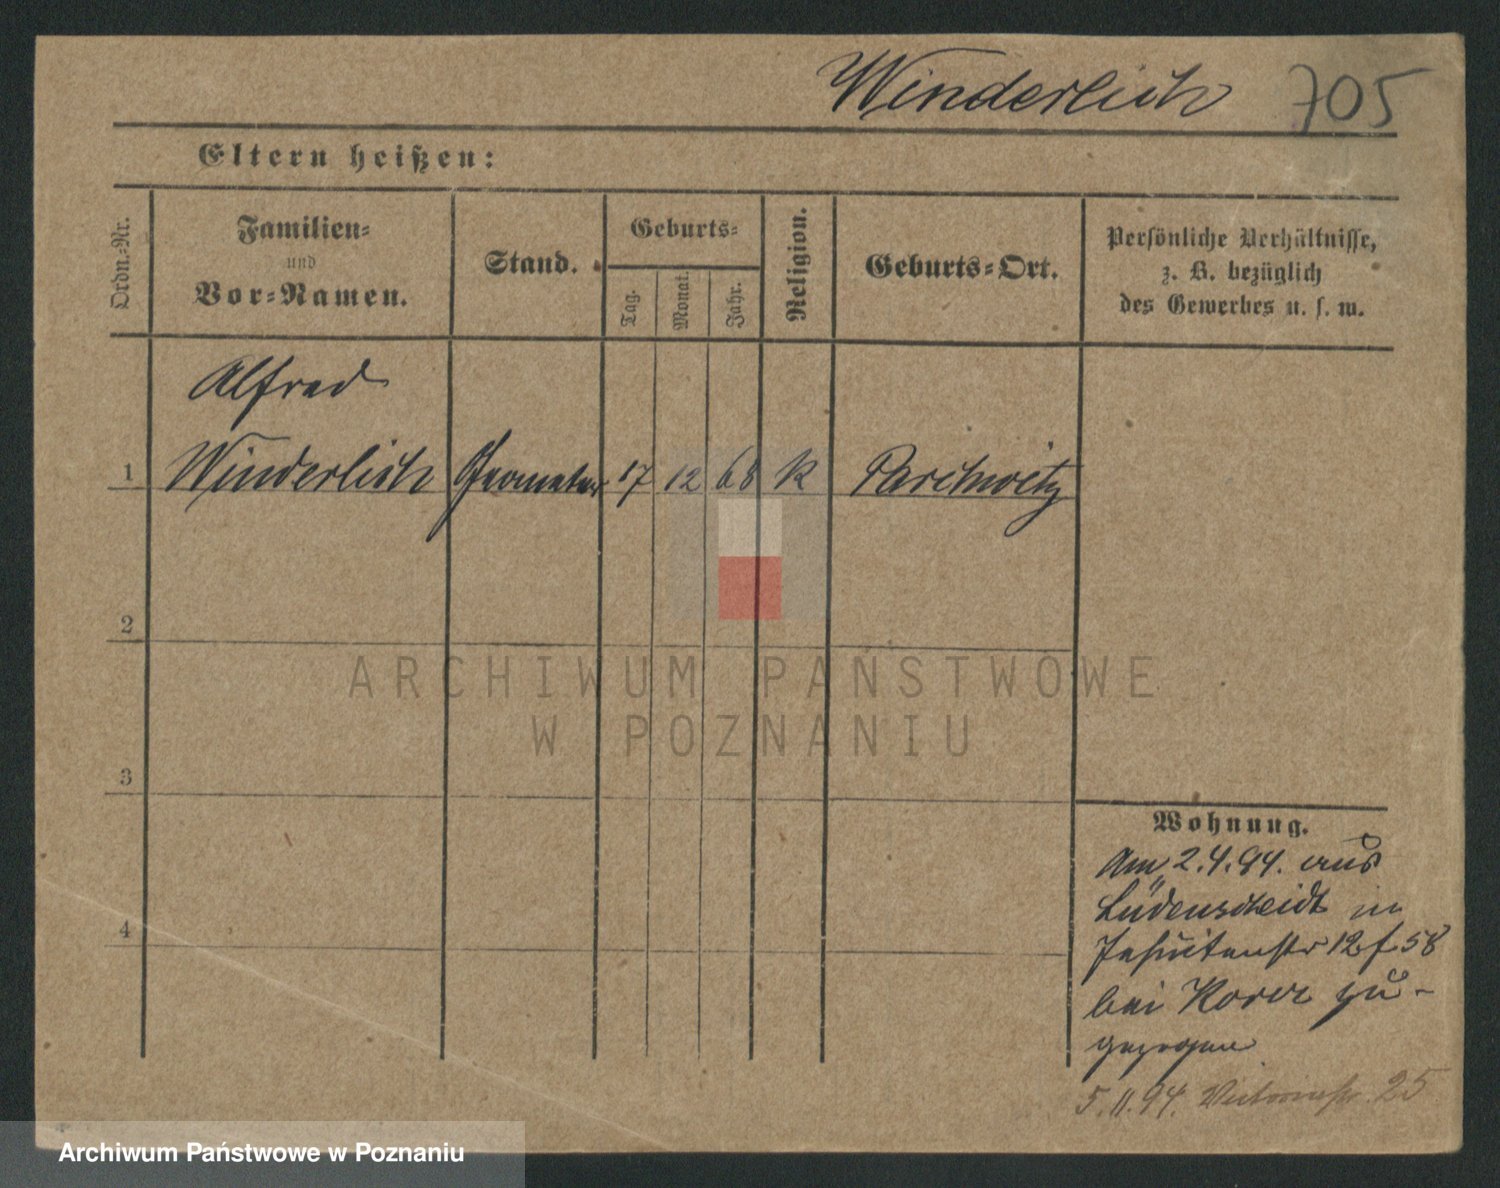 Winderlich 705
Eltern heißen:
Ordn.-Nr.
Familien-
und
Vor-Namen.
Stand.
Geburts-
Tag. Monat. Jahr.
Religion.
Geburts-Ort.
Persönliche Verhältnisse,
z. B. bezüglich
des Gewerbes u. s. w.
Alfred
1 Winderlich Geometer 17 12 68 k Parchwitz
2
3
4
ARCHIWUM PAŃSTWOWE
W POZNANIU
Wohnung.
Am 2.4.94. aus
Lüdenscheidt in
Jesuitenstr 12 f. 58
bei zu-
gezogen
5.11.94. Victoriastr. 25
Archiwum Państwowe w Poznaniu